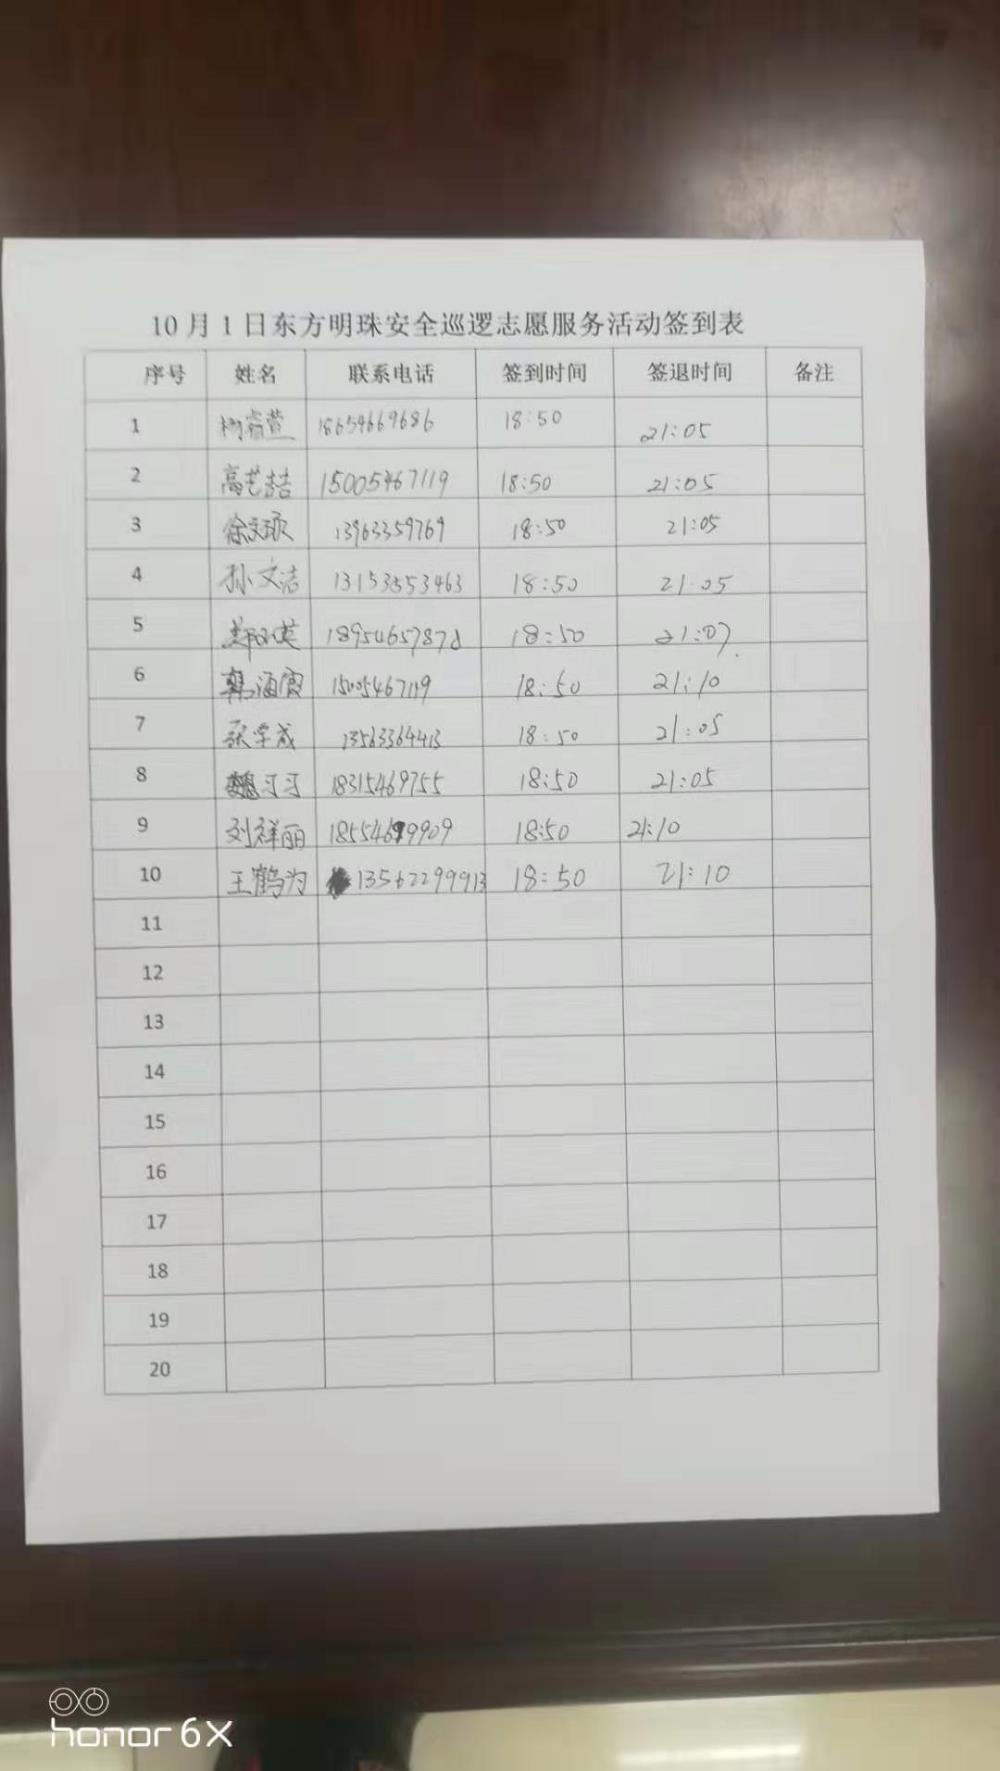 10月1日东方明珠安全巡逻志愿服务活动签到表
序号 姓名 联系电话 签到时间 签退时间 备注
1 18654669686 18:50 21:05
2 高艺喆 15005467119 18:50 21:05
3 13963359769 18:50 21:05
4 孙文洁 13153553463 18:50 21:05
5 18954657878 18:50 21:07
6 韩涵霞 15005467119 18:50 21:10
7 张学成 13563364413 18:50 21:05
8 魏习习 18315469755 18:50 21:05
9 刘祥丽 18554699909 18:50 21:10
10 王鹤为 13562299913 18:50 21:10
11
12
13
14
15
16
17
18
19
20
honor 6X